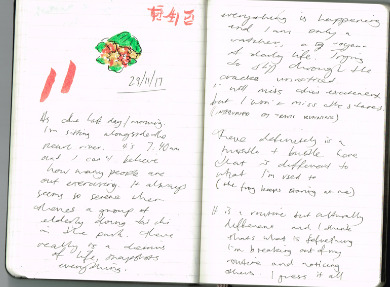 11
23/11/17
As the last day/morning
I'm sitting alongside the
pearl river. It's 7.40am
and I can't believe
how many people are
out exercising. It always
seems so serene when
theres a group of
elderly doing tai chi
in the park. There
really is a
of life, snapshots
everything.
everything is happening
and I am only a
watcher, a
of daily life. Trying
to slip through the
cracks unnoticed
I will miss this excitement
but I won't miss the stares.
(interested or
There definitely is a
hustle + bustle here
that is different to
what I'm used to
(the frog keeps at me)
It is a routine but culturally
different and I think
thats what is
I'm breaking out of my
routine and noticing
others. I guess it all